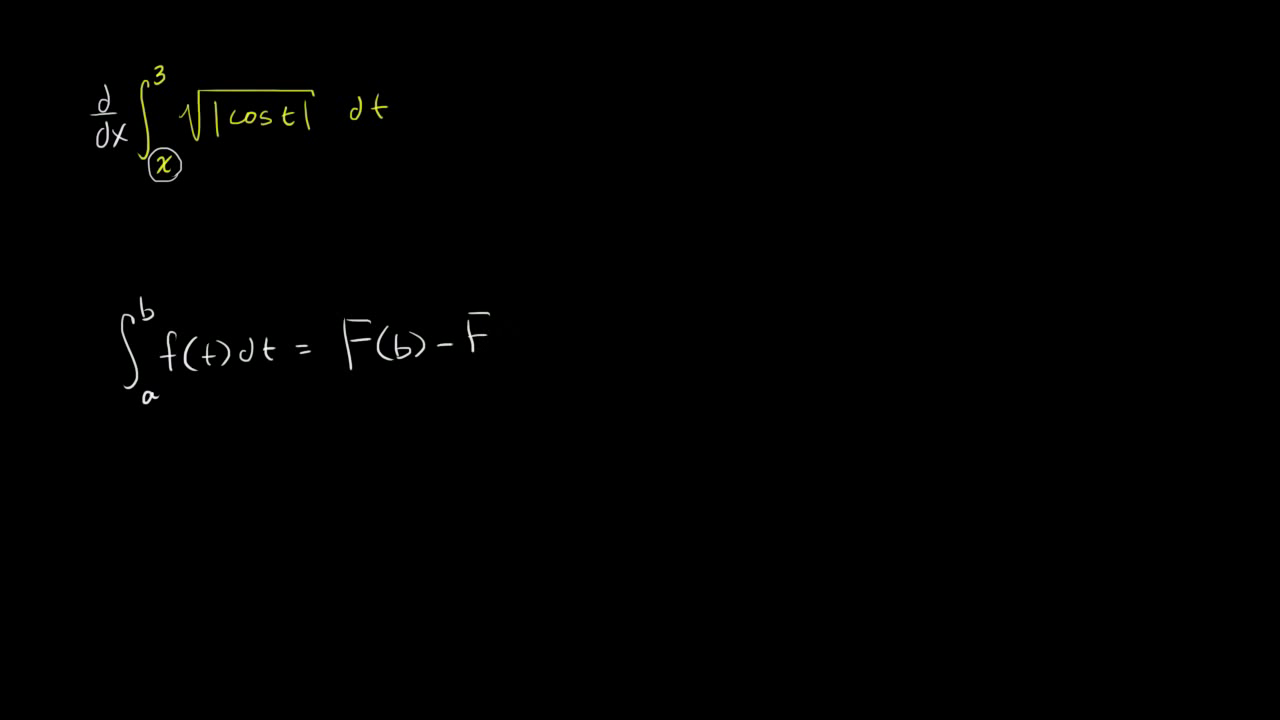 d/dx ∫_x^3 √|cos t| dt
∫_a^b f(t)dt = F(b) - F